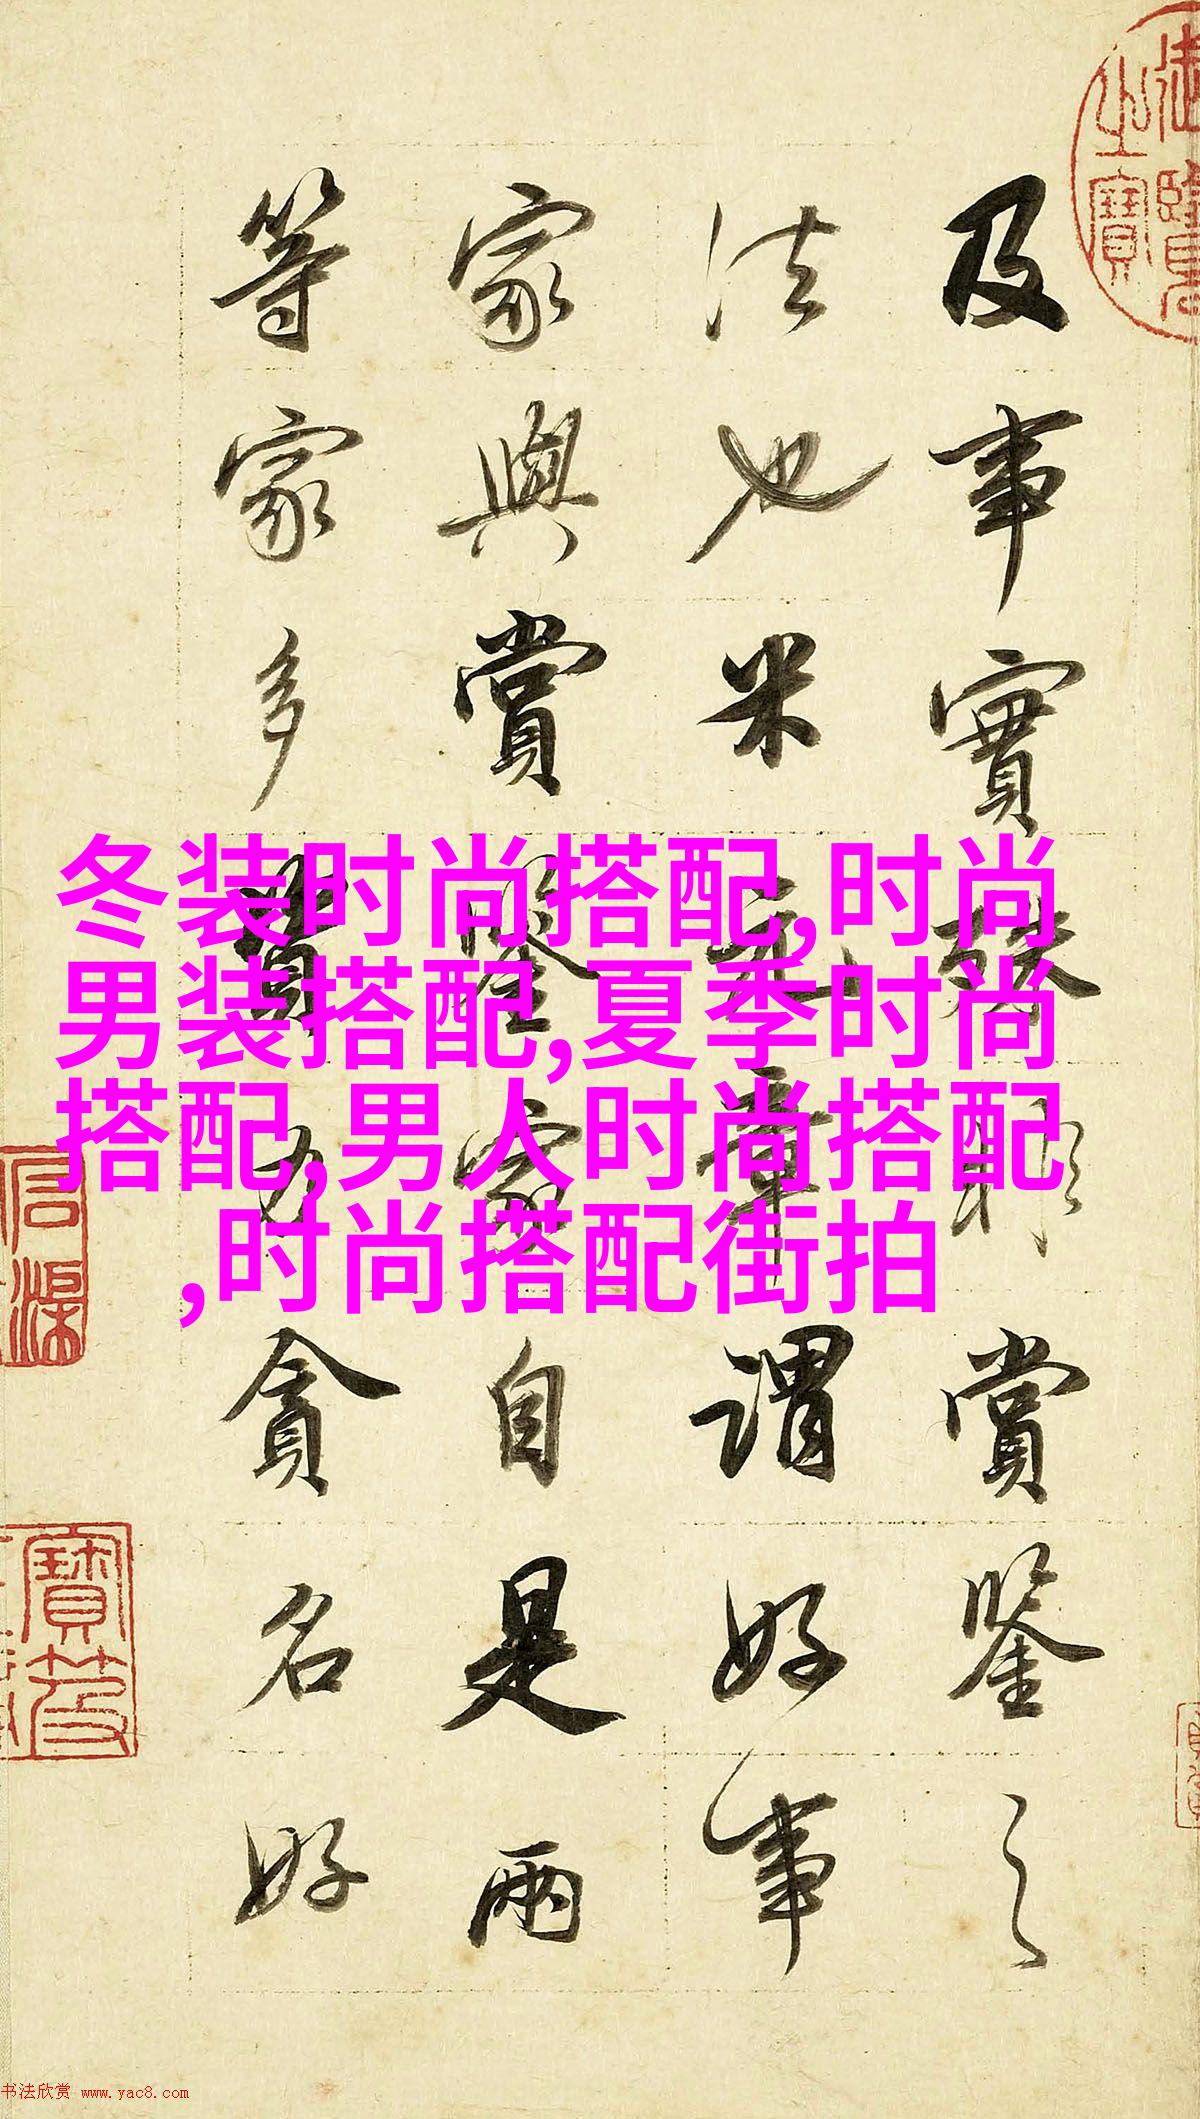 及事實賞鑒之
法也米元章謂好事
家與賞鑒家自是兩
等家多資力貪名好
冬装时尚搭配,时尚
男装搭配,夏季时尚
搭配,男人时尚搭配
,时尚搭配街拍
之寶
寶笈
书法欣赏 www.yac8.com